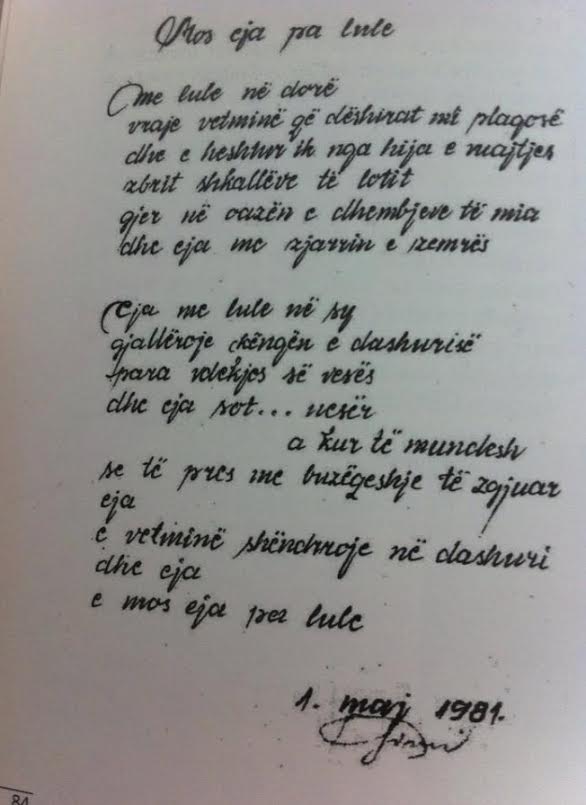 Mos eja pa lule
me lule në dorë
vraje vetminë që dëshirat mi plagosë
dhe e heshtur ik nga hija e majtjes
zbrit shkallëve të lotit
gjer në oazën e dhembjeve të mia
dhe eja me zjarrin e zemrës
Eja me lule në sy
gjallëroje këngën e dashurisë
para vdekjes së vesës
dhe eja sot... nesër
a kur të mundesh
se të pres me buzëqeshje të zgjuar
eja
e vetminë shëndrroje në dashuri
dhe eja
e mos eja pa lule
1. maj 1981.
84